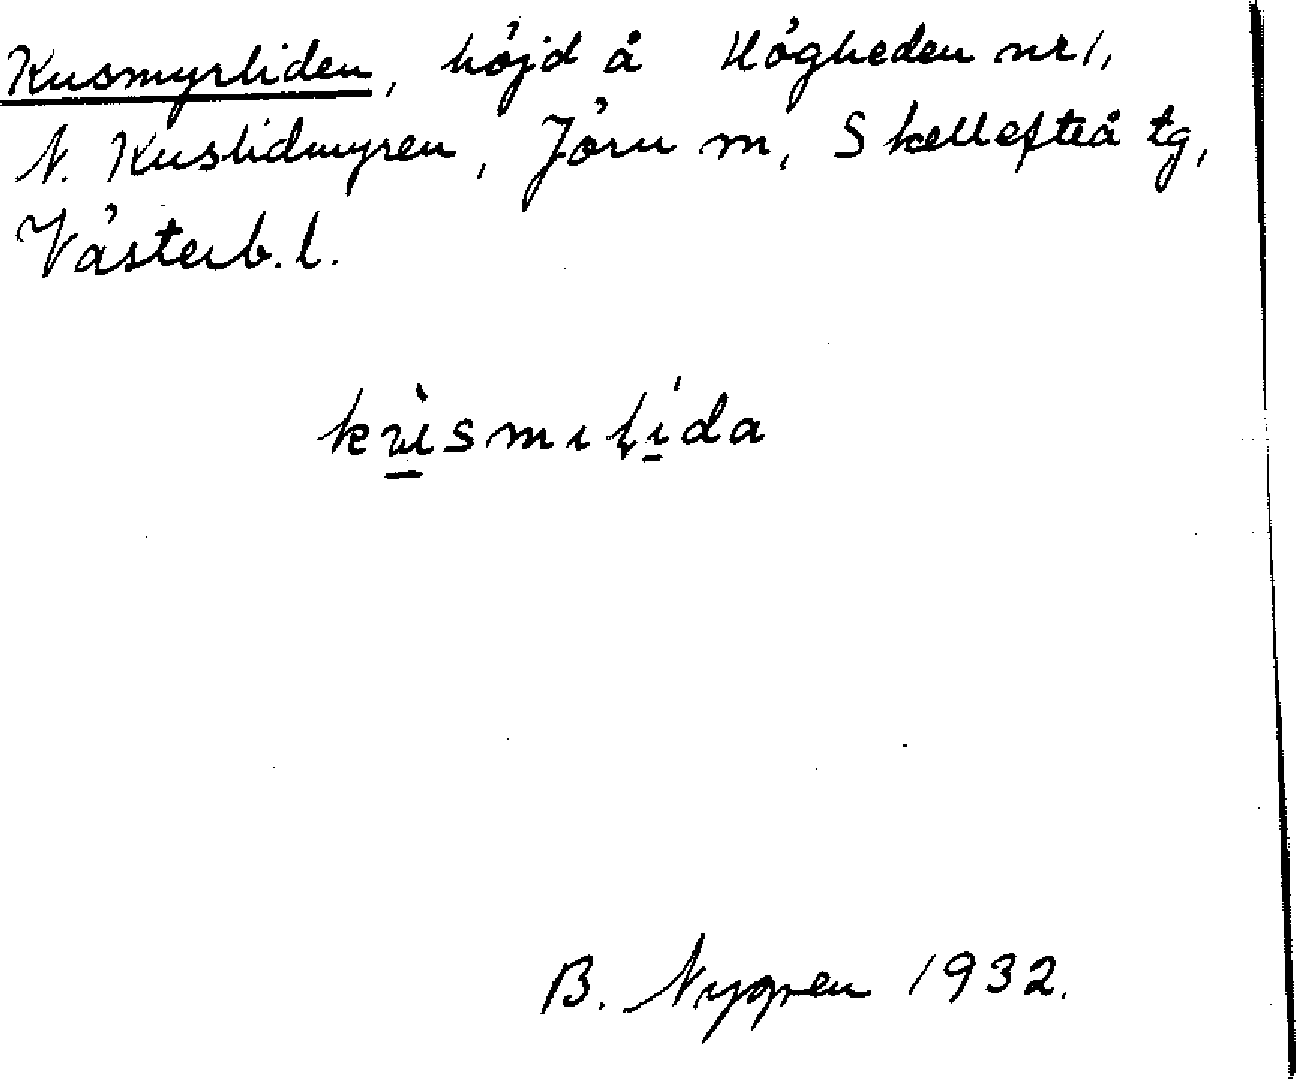 Kusmyrliden, höjd å Högheden nr 1,
N. Kuslidmyren, Jörn m, Skellefteå tg,
Västerb. l.
kùsmılída
B. Nygren 1932.